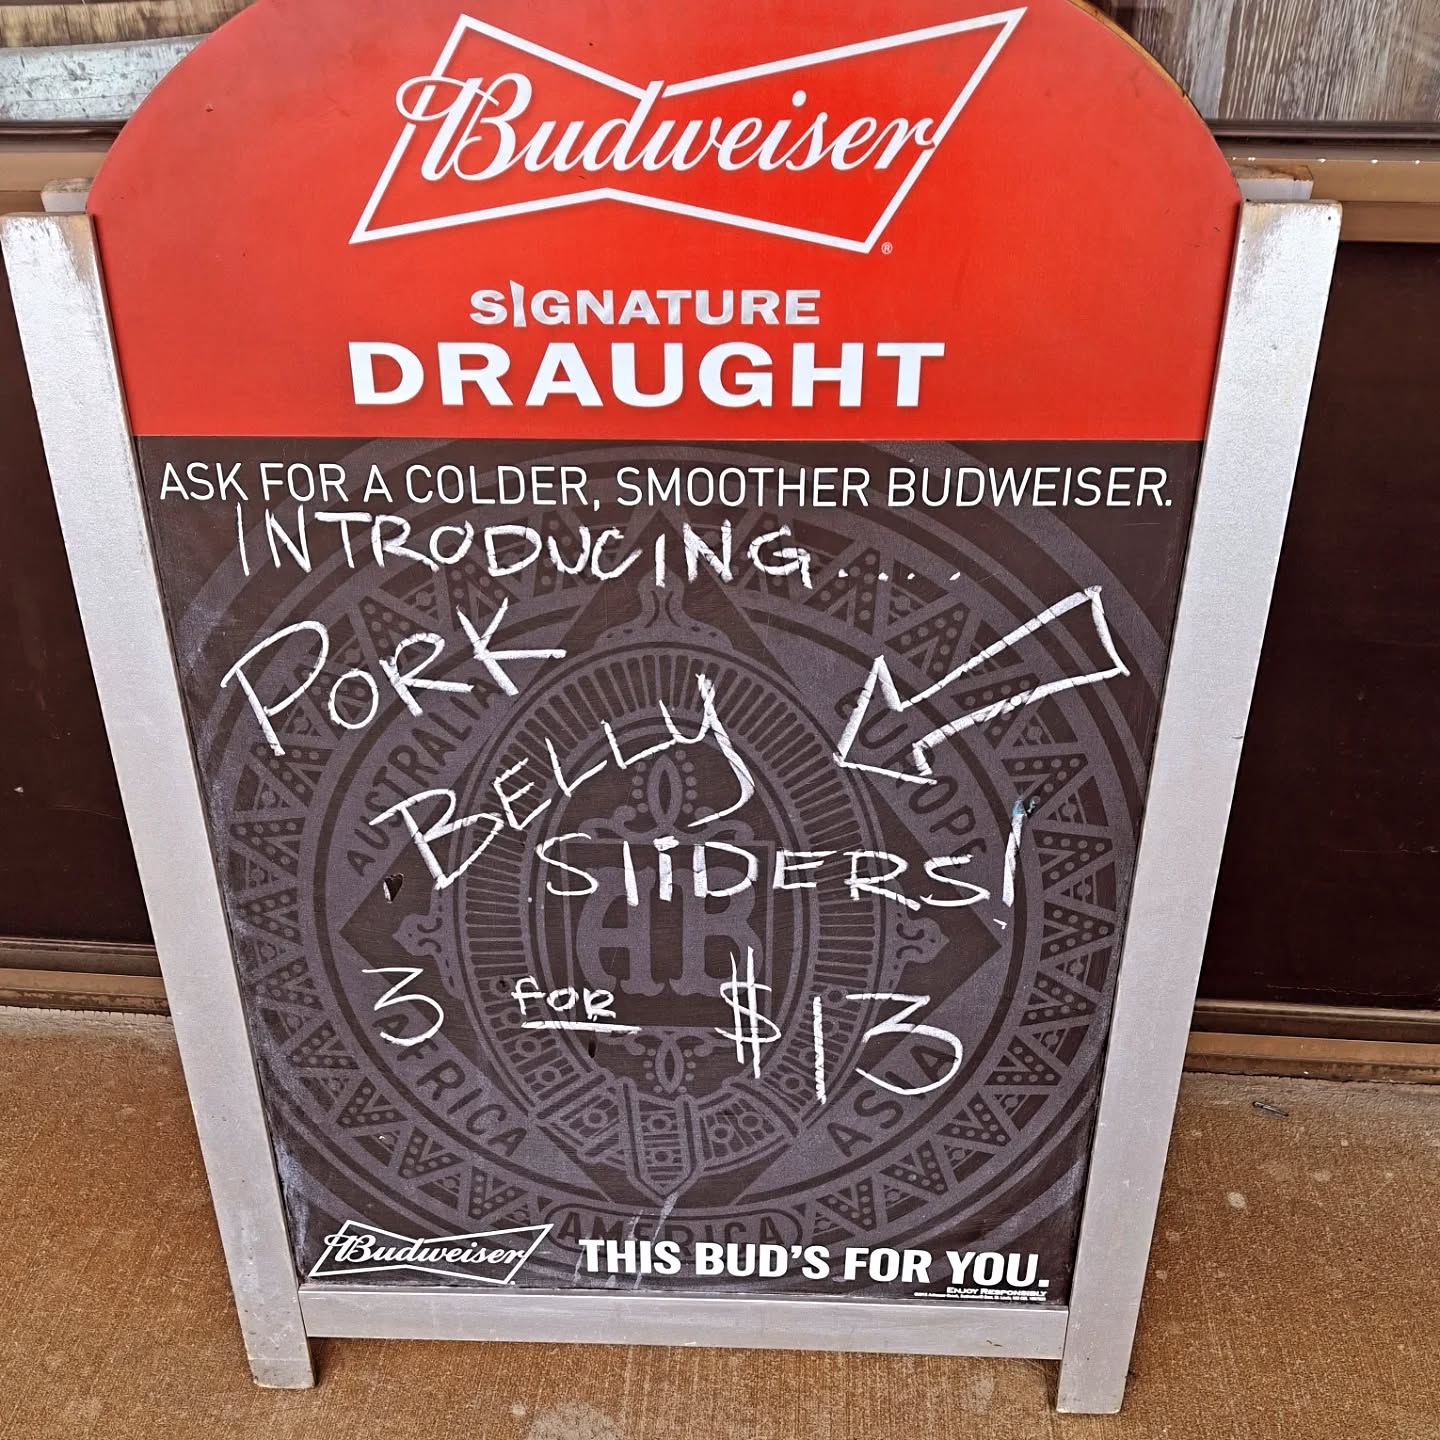 Budweiser
®
SIGNATURE
DRAUGHT
ASK FOR A COLDER, SMOOTHER BUDWEISER.
INTRODUCING.....
PORK
BELLY
SLIDERS!
3 FOR $13
AUSTRALIA
EUROPE
AB
AFRICA
ASIA
AMERICA
Budweiser
THIS BUD'S FOR YOU.
ENJOY RESPONSIBLY